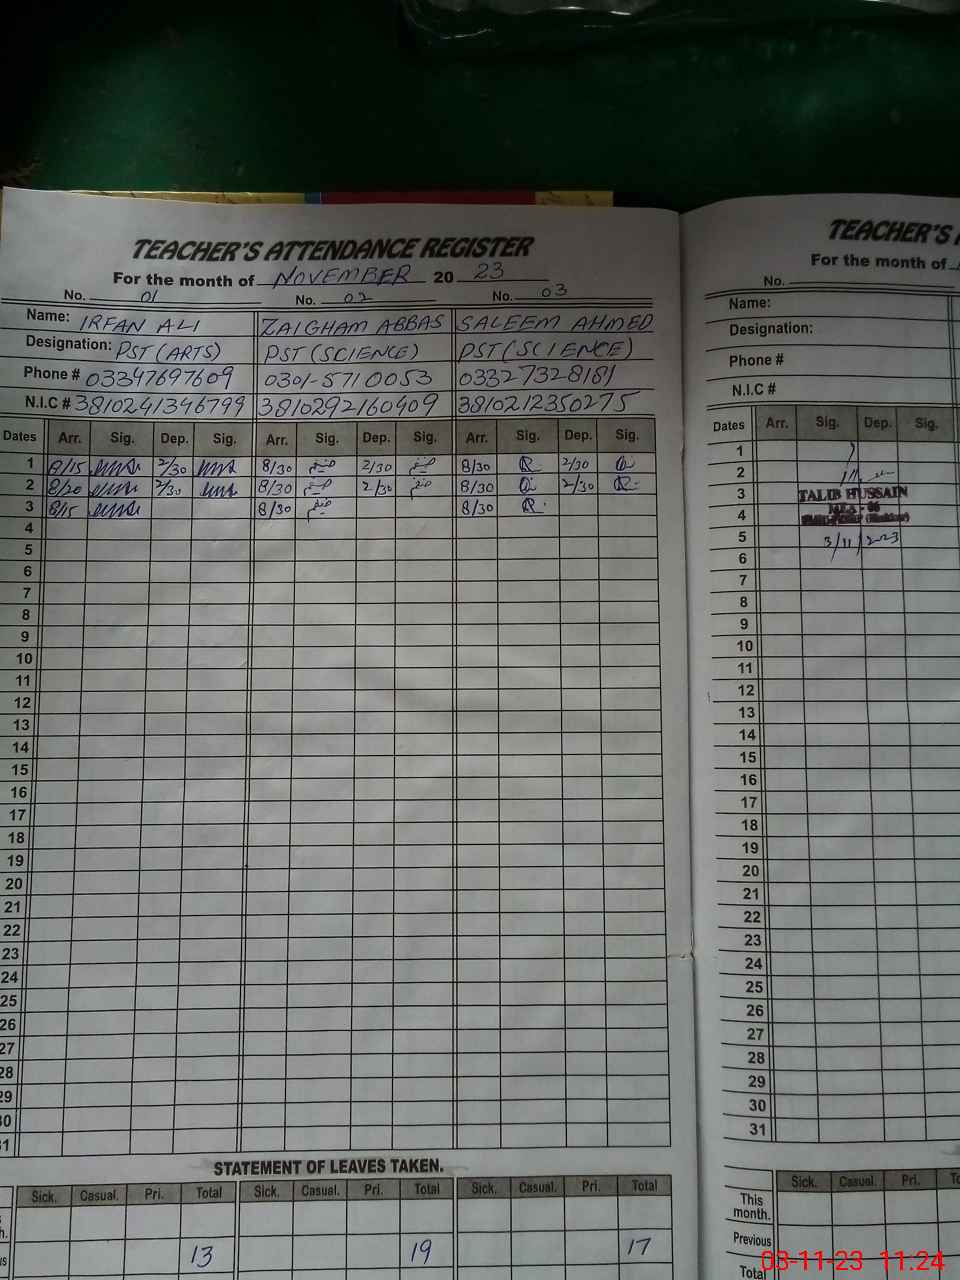 TEACHER'S ATTENDANCE REGISTER
For the month of NOVEMBER 20 23
No. 01 No. 02 No. 03
Name: IRFAN ALI ZAIGHAM ABBAS SALEEM AHMED
Designation: PST (ARTS) PST (SCIENCE) PST (SCIENCE)
Phone # 03347697609 0301-5710053 03327328181
N.I.C # 3810241346799 3810292160409 3810212350275
Dates Arr. Sig. Dep. Sig. Arr. Sig. Dep. Sig. Arr. Sig. Dep. Sig.
1 8/15 2/30 8/30 2/30 8/30 2/30
2 8/20 2/30 8/30 2/30 8/30 2/30
3 8/15 8/30 8/30
4
5
6
7
8
9
10
11
12
13
14
15
16
17
18
19
20
21
22
23
24
25
26
27
28
29
30
31
STATEMENT OF LEAVES TAKEN.
Sick. Casual. Pri. Total Sick. Casual. Pri. Total Sick. Casual. Pri. Total
13 19 17
TEACHER'S
For the month of
No.
Name:
Designation:
Phone #
N.I.C #
Dates Arr. Sig. Dep. Sig.
1
2
3 TALIB HUSSAIN
4
5 3/11/2023
6
7
8
9
10
11
12
13
14
15
16
17
18
19
20
21
22
23
24
25
26
27
28
29
30
31
Sick. Casual. Pri.
This
month.
Previous
Total
03-11-23 11:24